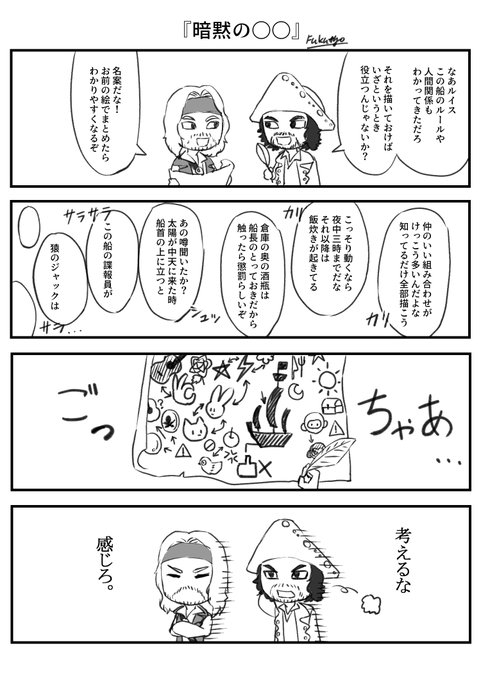 『暗黙の○○』
Fukutyo
なあルイス
この船のルールや
人間関係も
わかってきただろ
それを描いておけば
いざというとき
役立つんじゃないか?
名案だな!
お前の絵でまとめたら
わかりやすくなるぞ
仲のいい組み合わせが
けっこう多いんだよな
知ってるだけ全部描こう
ガリ
ガリ
こっそり動くなら
夜中三時までだな
それ以降は
飯炊きが起きてる
倉庫の奥の酒瓶は
船長のとっておきだから
触ったら懲罰らしいぞ
あの噂聞いたか?
太陽が中天に来た時
船首の上に立つと
シュッ
サラサラ
この船の諜報員が
猿のジャックは
サラ…
ごっ
ちゃあ
…
考えるな
感じろ。